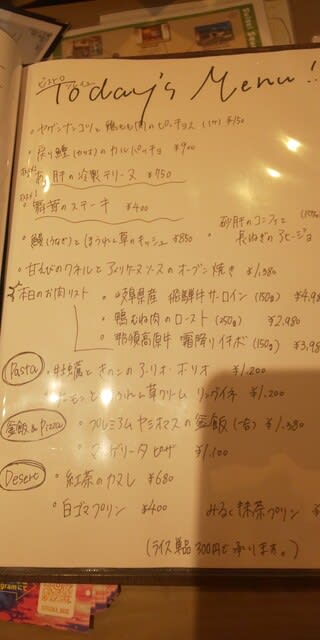 ビストロ
Today's Menu!!
・ヤゲンナンコツと鶏もも肉のピンチョス (1ヶ) ¥150
・戻り鰹(かつお)のカルパッチョ ¥900
肝の冷製テリーヌ ¥750
茸のステーキ ¥400
砂肝のコンフィと
長ねぎのアヒージョ
・鰻(うなぎ)とほうれん草のキッシュ ¥850
・甘えびのクネルとアメリケーヌソースのオーブン焼き ¥1.380
本日のお肉リスト
・岐阜県産 飛騨牛サーロイン (150g) ¥4.98
・鴨むね肉のロースト (250g) ¥2.980
・那須高原牛 霜降りイチボ (150g) ¥3.98
Pasta
・牡蠣ときのこのアーリオ・オーリオ ¥1.200
サーモンとほうれん草クリーム リングイネ ¥1.200
釜飯 & Pizza
・プレミアムヤシオマスの釜飯 (一合) ¥1.380
マルゲリータピザ ¥1.100
Desert
・紅茶のカヌレ ¥680
・白ゴマプリン ¥400
みるく抹茶プリン
(ライス単品 300円で承ります。)